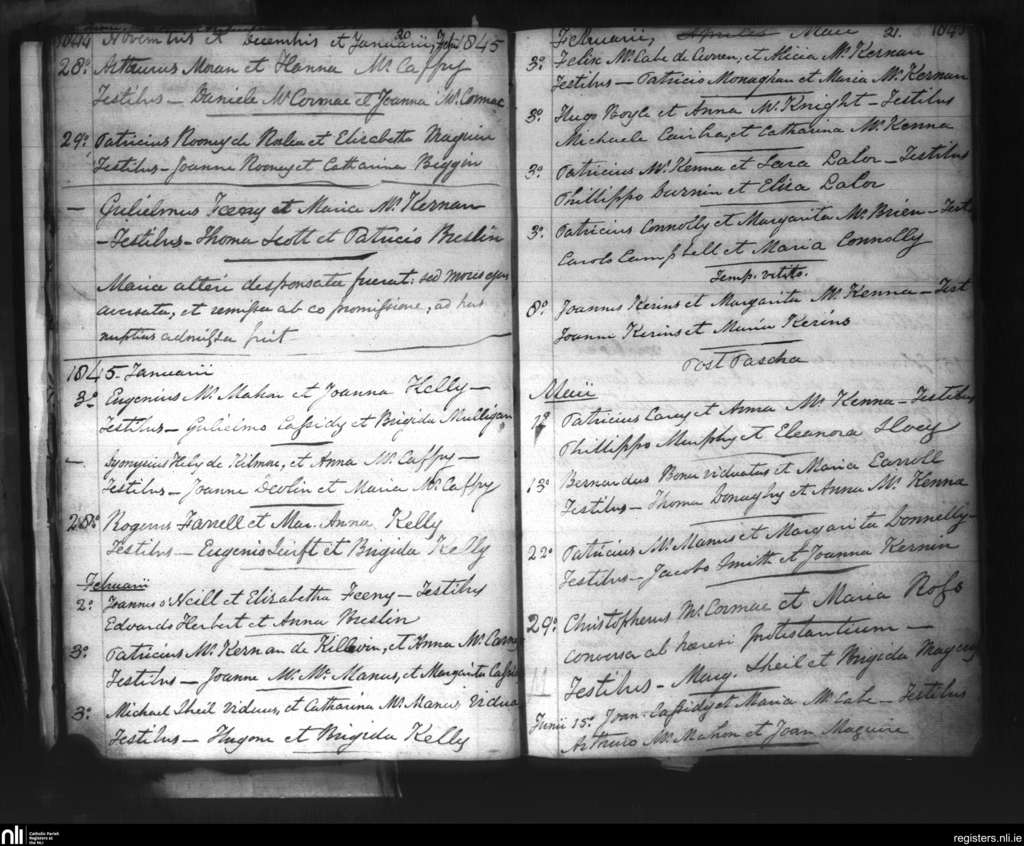 1844 Novembris et Decembris et Januarii, Feb. 1845
20
28º Arthurus Moran et Hanna Mc Caffry
Testibus — Daniele McCormac et Joanna McCormac
29º Patricius Roony de et Elizabetha Maguire
Testibus — Joanne Rooney et Catharina Biggin
— Gulielmus Feeny et Maria Mc Kernan
— Testibus — Thoma Scott et Patricio Breslin
Maria alteri desponsata fuerat: sed mores ejus
accusata, et remissa ab eo promissione, ad has
nuptias admissa fuit
1845 Januarii
3º Eugenius Mc Mahon et Joanna Kelly —
Testibus — Gulielmo Cassidy et Brigida Mulligan
— Dyonysius Hely de Kilmac, et Anna Mc Caffry —
Testibus — Joanne Devlin et Maria Mc Caffry
28º Rogerus Farrell et Mar. Anna Kelly
Testibus — Eugenio Swift et Brigida Kelly
Februarii
2º Joannes O'Neill et Elizabetha Feeny — Testibus
Edvardo Herbert et Anna Breslin
3º Patricius Mc Kernan de Killevin, et Anna Mc
Testibus — Joanne Mc Manus, et Margarita
3º Michael Sheil viduus, et Catharina Mc Manus vidua
Testibus — Hugone et Brigida Kelly
Februarii, Aprilis Maii 21. 1845
3º Felix McCabe de et Alicia Mc Kernan
Testibus — Patricio Monaghan et Maria Mc Kernan
3º Hugo Boyle et Anna McKnight — Testibus
Michaele et Catharina Mc Kenna
3º Patricius Mc Kenna et Sara Lalor — Testibus
Phillippo Durnin et Elisa Lalor
3º Patricius Connolly et Margarita McBrien — Test
Carolo Campbell et Maria Connolly
Temp. vetito.
8º Joannes Kerins et Margarita Mc Kenna — Test
Joanne Kerins et Maria Kerins
Post Pascha
Maii
1º Patricius Carey et Anna Mc Kenna — Testibus
Phillippo Murphy et Eleanora Hoey
13º Bernardus viduatus et Maria Carroll
Testibus — Thoma Donaghy et Anna Mc Kenna
22º Patricius McManus et Margarita Donnelly —
Testibus — Jacobo Smith et Joanna Kernin
29º Christopherus McCormac et Maria Ross
conversa ab haeresi protestantium —
Testibus — Marg. Sheil et Brigida
Junii 15º Joan. Cassidy et Maria McCabe — Testibus
Arthuro McMahon et Joan Maguire
nli
Catholic Parish
Registers at
the NLI
registers.nli.ie